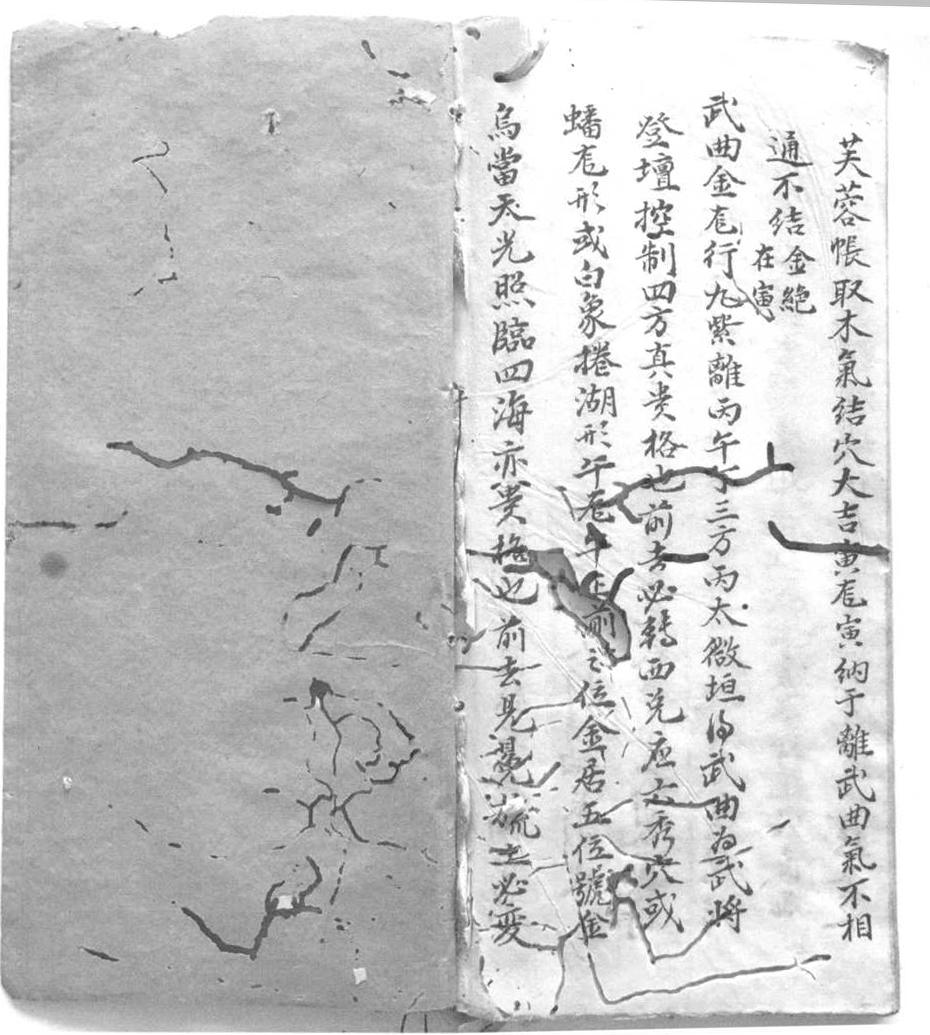 芙蓉帳取木氣結穴大吉寅龙寅納于離武曲氣不相
通不結金絕在寅
武曲金龙行九紫離丙午丁三方丙太微垣得武曲為武將
登壇控制四方真贵格也前去必轉西兑应六秀穴或
蟠龙形或白象捲湖形午龙午上前位金居五位號金
烏當天光照臨四海亦贵格也前去見必变